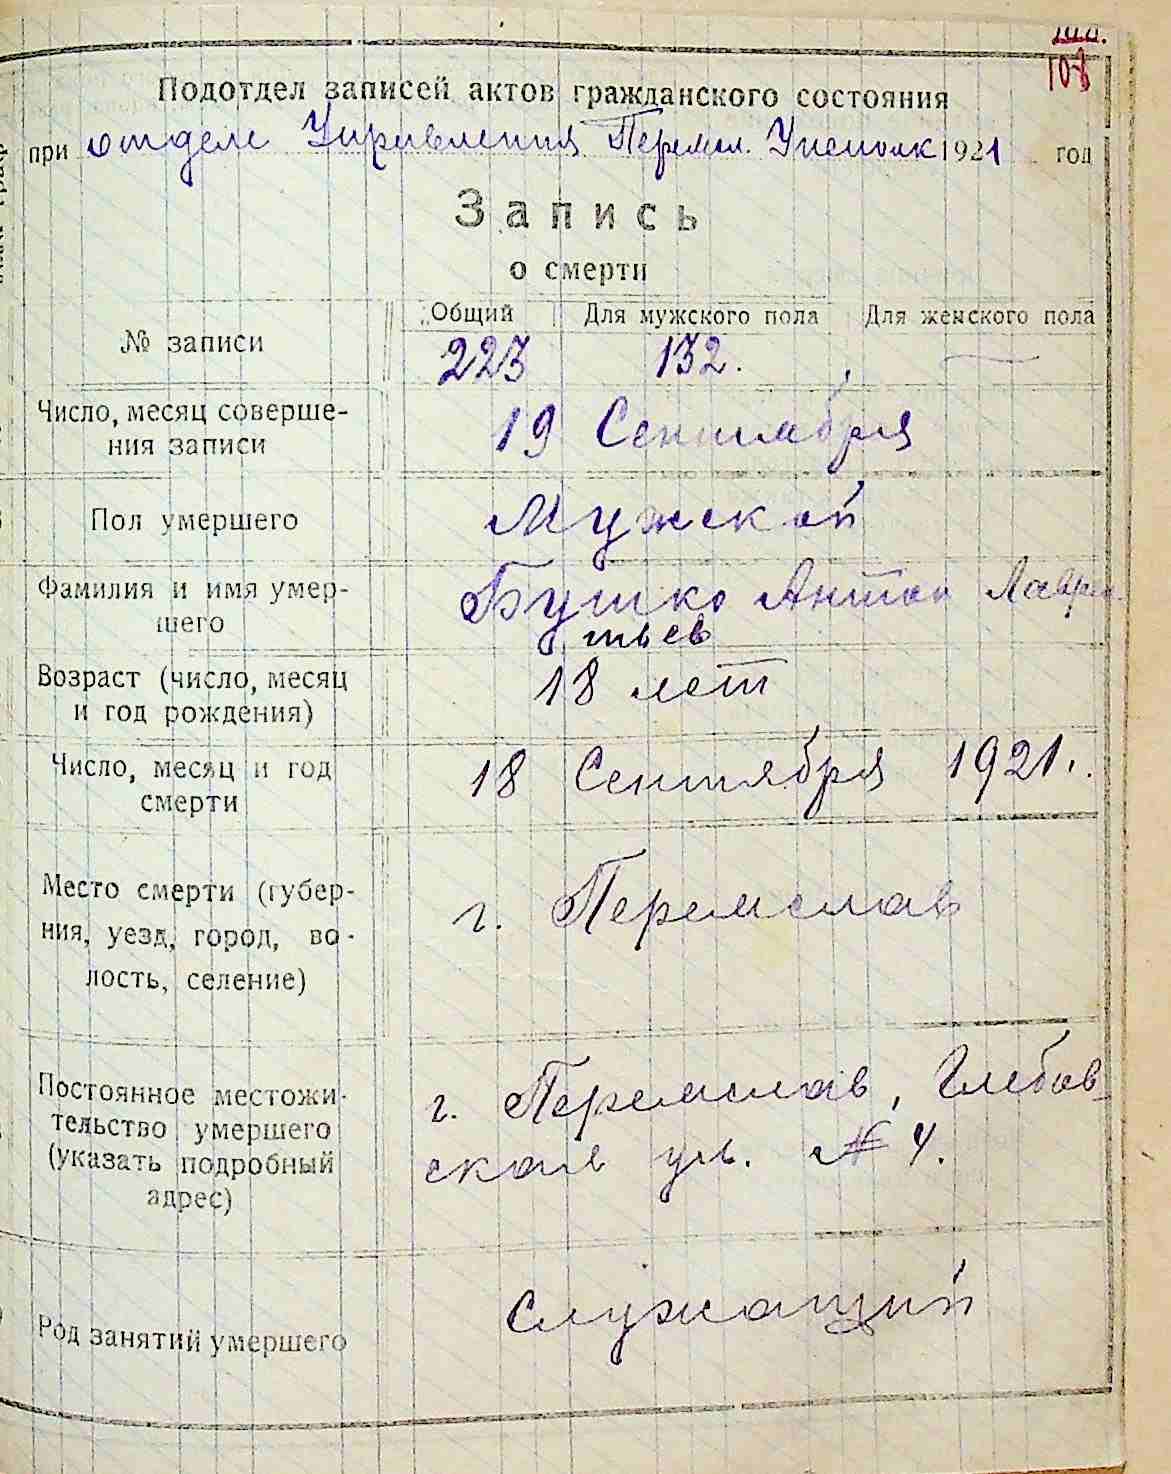 108
Подотдел записей актов гражданского состояния
при отделе Управления Перемсл. Уисполк 1921 год
Запись
о смерти
№ записи
Общий Для мужского пола Для женского пола
223 132. —
Число, месяц соверше-
ния записи
19 Сентября
Пол умершего
Мужской
Фамилия и имя умер-
шего
Бушко Антон Лаврен
тьев
Возраст (число, месяц
и год рождения)
18 лет
Число, месяц и год
смерти
18 Сентября 1921.
Место смерти (губер-
ния, уезд, город, во-
лость, селение)
г. Перемслав
Постоянное местожи-
тельство умершего
(указать подробный
адрес)
г. Перемслав, Глебов-
ская ул. № 4.
Род занятий умершего
Служащий